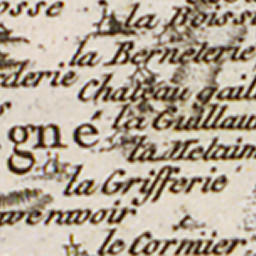 osse
la Boissi
la Berneterie
rderie
Chateau gaill
gné
la Guillau
la Metaim
la Grifferie
wenwoir
le Cormier